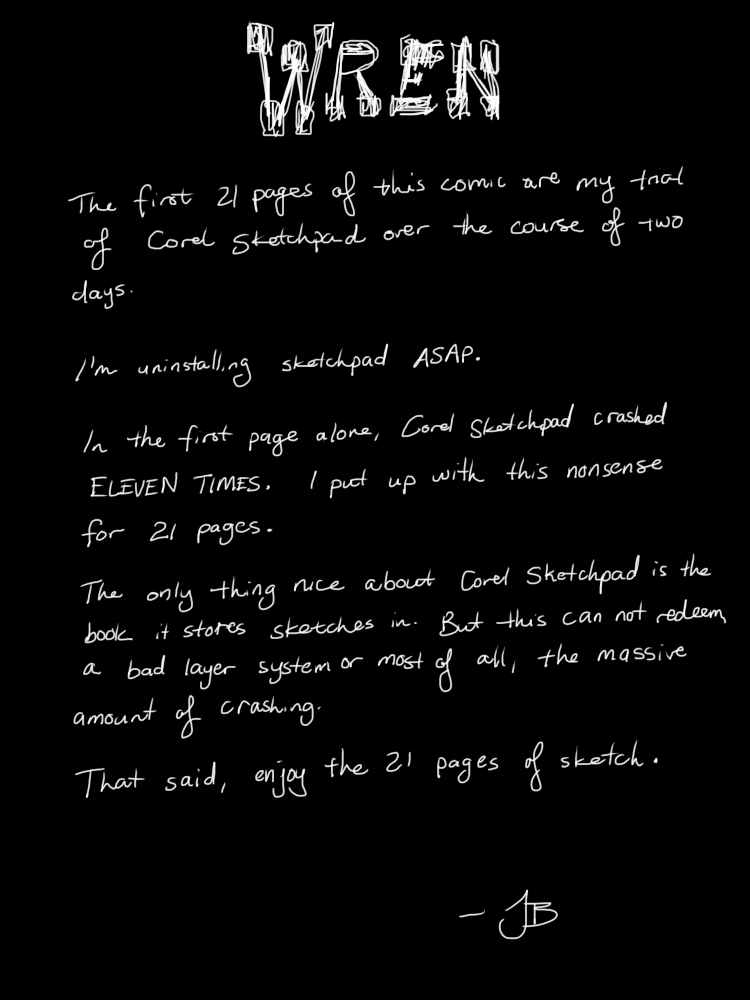 WREN
The first 21 pages of this comic are my trial
of Corel Sketchpad over the course of two
days.
I'm uninstalling sketchpad ASAP.
In the first page alone, Corel Sketchpad crashed
ELEVEN TIMES. I put up with this nonsense
for 21 pages.
The only thing nice about Corel Sketchpad is the
book it stores sketches in. But this can not redeem
a bad layer system or most of all, the massive
amount of crashing.
That said, enjoy the 21 pages of sketch.
— JB